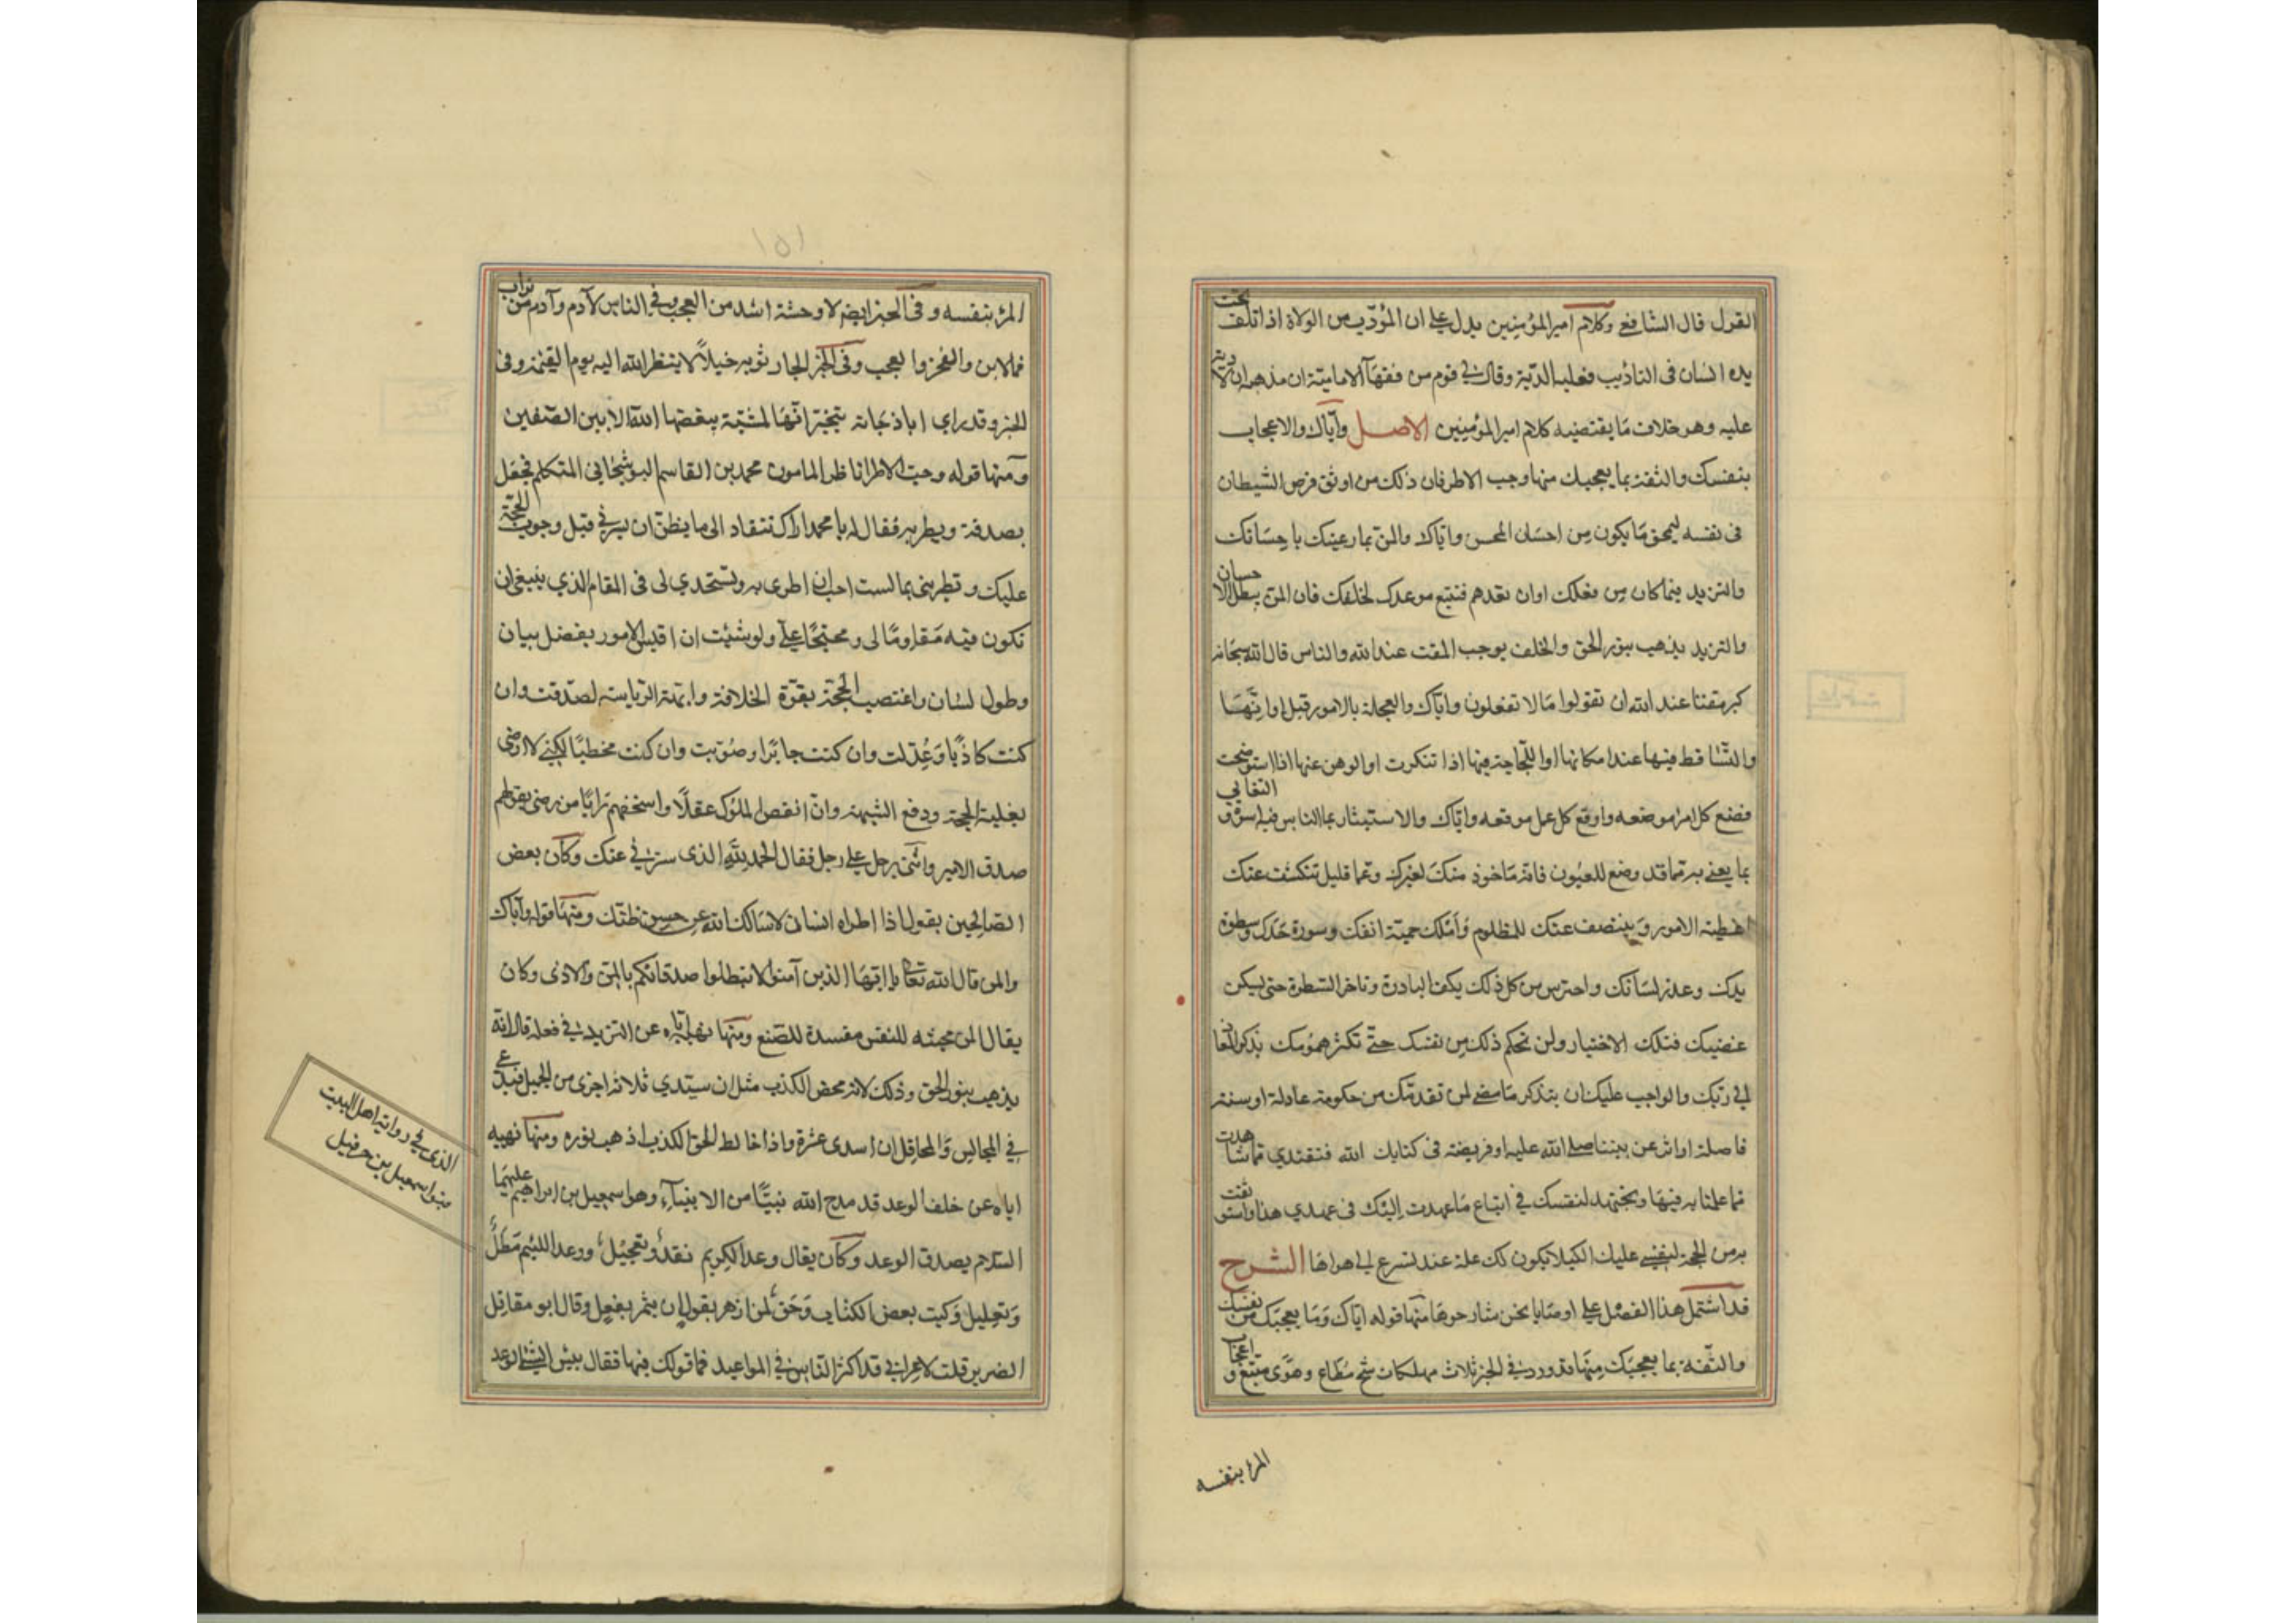 القول قال الشافعي وكلام امير المؤمنين يدل على ان المؤدب من الولاة اذا اتلف تحت
يده انسان فى التاديب فعليه الدية وقال لي قوم من فقهآء الامامية ان مذهبهم ان لا دية
عليه وهو خلاف مَا يقتضيه كلام امير المؤمنين الاصل وآياك والاعجاب
بنفسك والثقة بما يعجبك منها وحب الاطرا فان ذلك من اوثق فرص الشيطان
فى نفسه ليمحق مَا يكون مِن احسَان المحسن واياك والمن بما رعيتك باحسَانك
والتزيد فيما كان مِن فعلك اوان تعدهم فتتبع موعدك لخلفك فان المن يبطل الاحسان
والتزيد يذهب بنور الحق والخلف يوجب المقت عند الله والناس قال الله سبحانه
كبر مقتا عند الله ان تقولوا مَا لا تفعلون واياك والعجلة بالامور قبل اوانهَا
والتسَاقط فيها عند امكانها او اللّجاجة فيها اذا تنكرت او الوهن عنها اذا استوضحت
فضع كل امرا موضعه واوقع كل عمل موقعه واياك والاستيثار بما الناس فيه اسوة و التغابي
بما يعنى به مما قد وضع للعيون فانه مَاخوذ منكَ لغيرك وعما قليل تنكشف عنك
اغطية الامور وَينتصف عنك للمظلوم وَاَملك حمية انفك وسورة حَدك وسطوة
يدك وعذب لسَانك واحترس من كل ذلك بكف البادرة وتاخر السطوة حتى ليكن
غضبك فتلك الاختيار ولن تحكم ذلك مِن نفسك حتّى تكثر همُومك بذكر المعاد
الى ربك والواجب عليك ان بتذكر مَا مضى لمن تقدمك من حكومة عادلة او سنة
فاصلة او اثر عن بيننا صلى الله عليه او فريضة فى كتابك الله فتقتدي مما شاهدت
مما علمنا به فيهَا وتجتهد لنفسك في اتباع مَا عهدت اِليْك فى عهدي هذا واستوثقت
به من الحجة لنفسي عليك الكيلا يكون لك علة عند تسرع الى هواها الشرح
قد اشتمل هذا الفصْل على اوصَايا نحن شارحوهَا منها قوله اياك وَمَا يعجبَك من نفسك
والثّقة بما يعجبُك مِنهَا قد ورد في الخبر ثلاث مهلكات شح مُطاع وهوًى متبَع و اعجاب
المرء بنفسه
١٥١
المرء بنفسه وفى الخبر ايضا لا وحشة اشد من العجب وفي الناس لآدم وآدم من تراب
فمالابن والفخر والعجب وفى الخبر الجار ثوبه خيلاً لا ينظر الله اليه يوم القيمة وفى
الخبر وقد راى ابا دجانة يتبختر انّهَا لمشيَة يبغضها الله الا بين الصّفين
وَمنها قوله وحبّ الاطرا ناظر المامون محمد بن القاسم البوشنجانى المتكلم فجعل
يصدقه ويطريه فقال له يا محمد اراك تنقاد الى ما يظن ان يسرني قبل وجوب الحجة
عليك وتطرينى بما لست احب ان اطرى به وتستخدي لى فى المقام الذي ينبغى ان
تكون فيه مَقاومًا لى ومحتجًا علىّ ولو شئت ان اقيس الامور بفضل بيان
وطول لسان واغتصب الحجة بقوّة الخلافة وابهة الرياسة لصدّقت وان
كنت كاذبًا وَعُدّلت وان كنت جائرًا وصُوّبت وان كنت مخطئًا لكني لا ارضى
بغلبة الحجة ودفع الشبهة وانّ انقص الملوك عقلًا واسخفهم رايًا من رضى بقولهم
صدق الامير واثنى رجل على رجل فقال الحمد لله الذى سترني عنك وكان بعض
الصالحين يقول اذا اطراه انسان لا سَالك الله عن حسن ظنّك ومنهَا قوله وآياك
والمن قال الله تعالى يا ايّهَا الذين آمنوا لا تبطلوا صدقاتكم بالمنّ والاذى وكان
يقال المن محبته للنفس مفسدة للصّنع ومنها نهيه اياه عن التزيد في فعله قال انه
يذهب بنور الحق وذلك لانه محض الكذب مثل ان سيتدي ثلاثه اجزى من الجميل فيدعى
في المجالس وَالمحافل ان اسدى عشرة واذا خالط الحق الكذب اذهب نوره ومنها نهيه
اياه عن خلف الوعد قد مدح الله نبيًا من الانبيآء وهو اسمعيل بن ابراهيم عليهمَا
السّلام بصدق الوعد وكان يقال وعد الكريم نقدٌ وتعجيلٌ ووعد اللئيم مَطلٌ
وَتعليل وَكيت بعض الكتاب وَحَق لمن ازهر بقول ان يثمر بفعل وقال ابو مقاتل
الضرير قلت لاعرابي قد اكثر الناس في المواعيد فما قولك فيها فقال بيس الشيء الوعد
الذى في رواية اهل البيت
بنو اسمعيل بن حزقيل